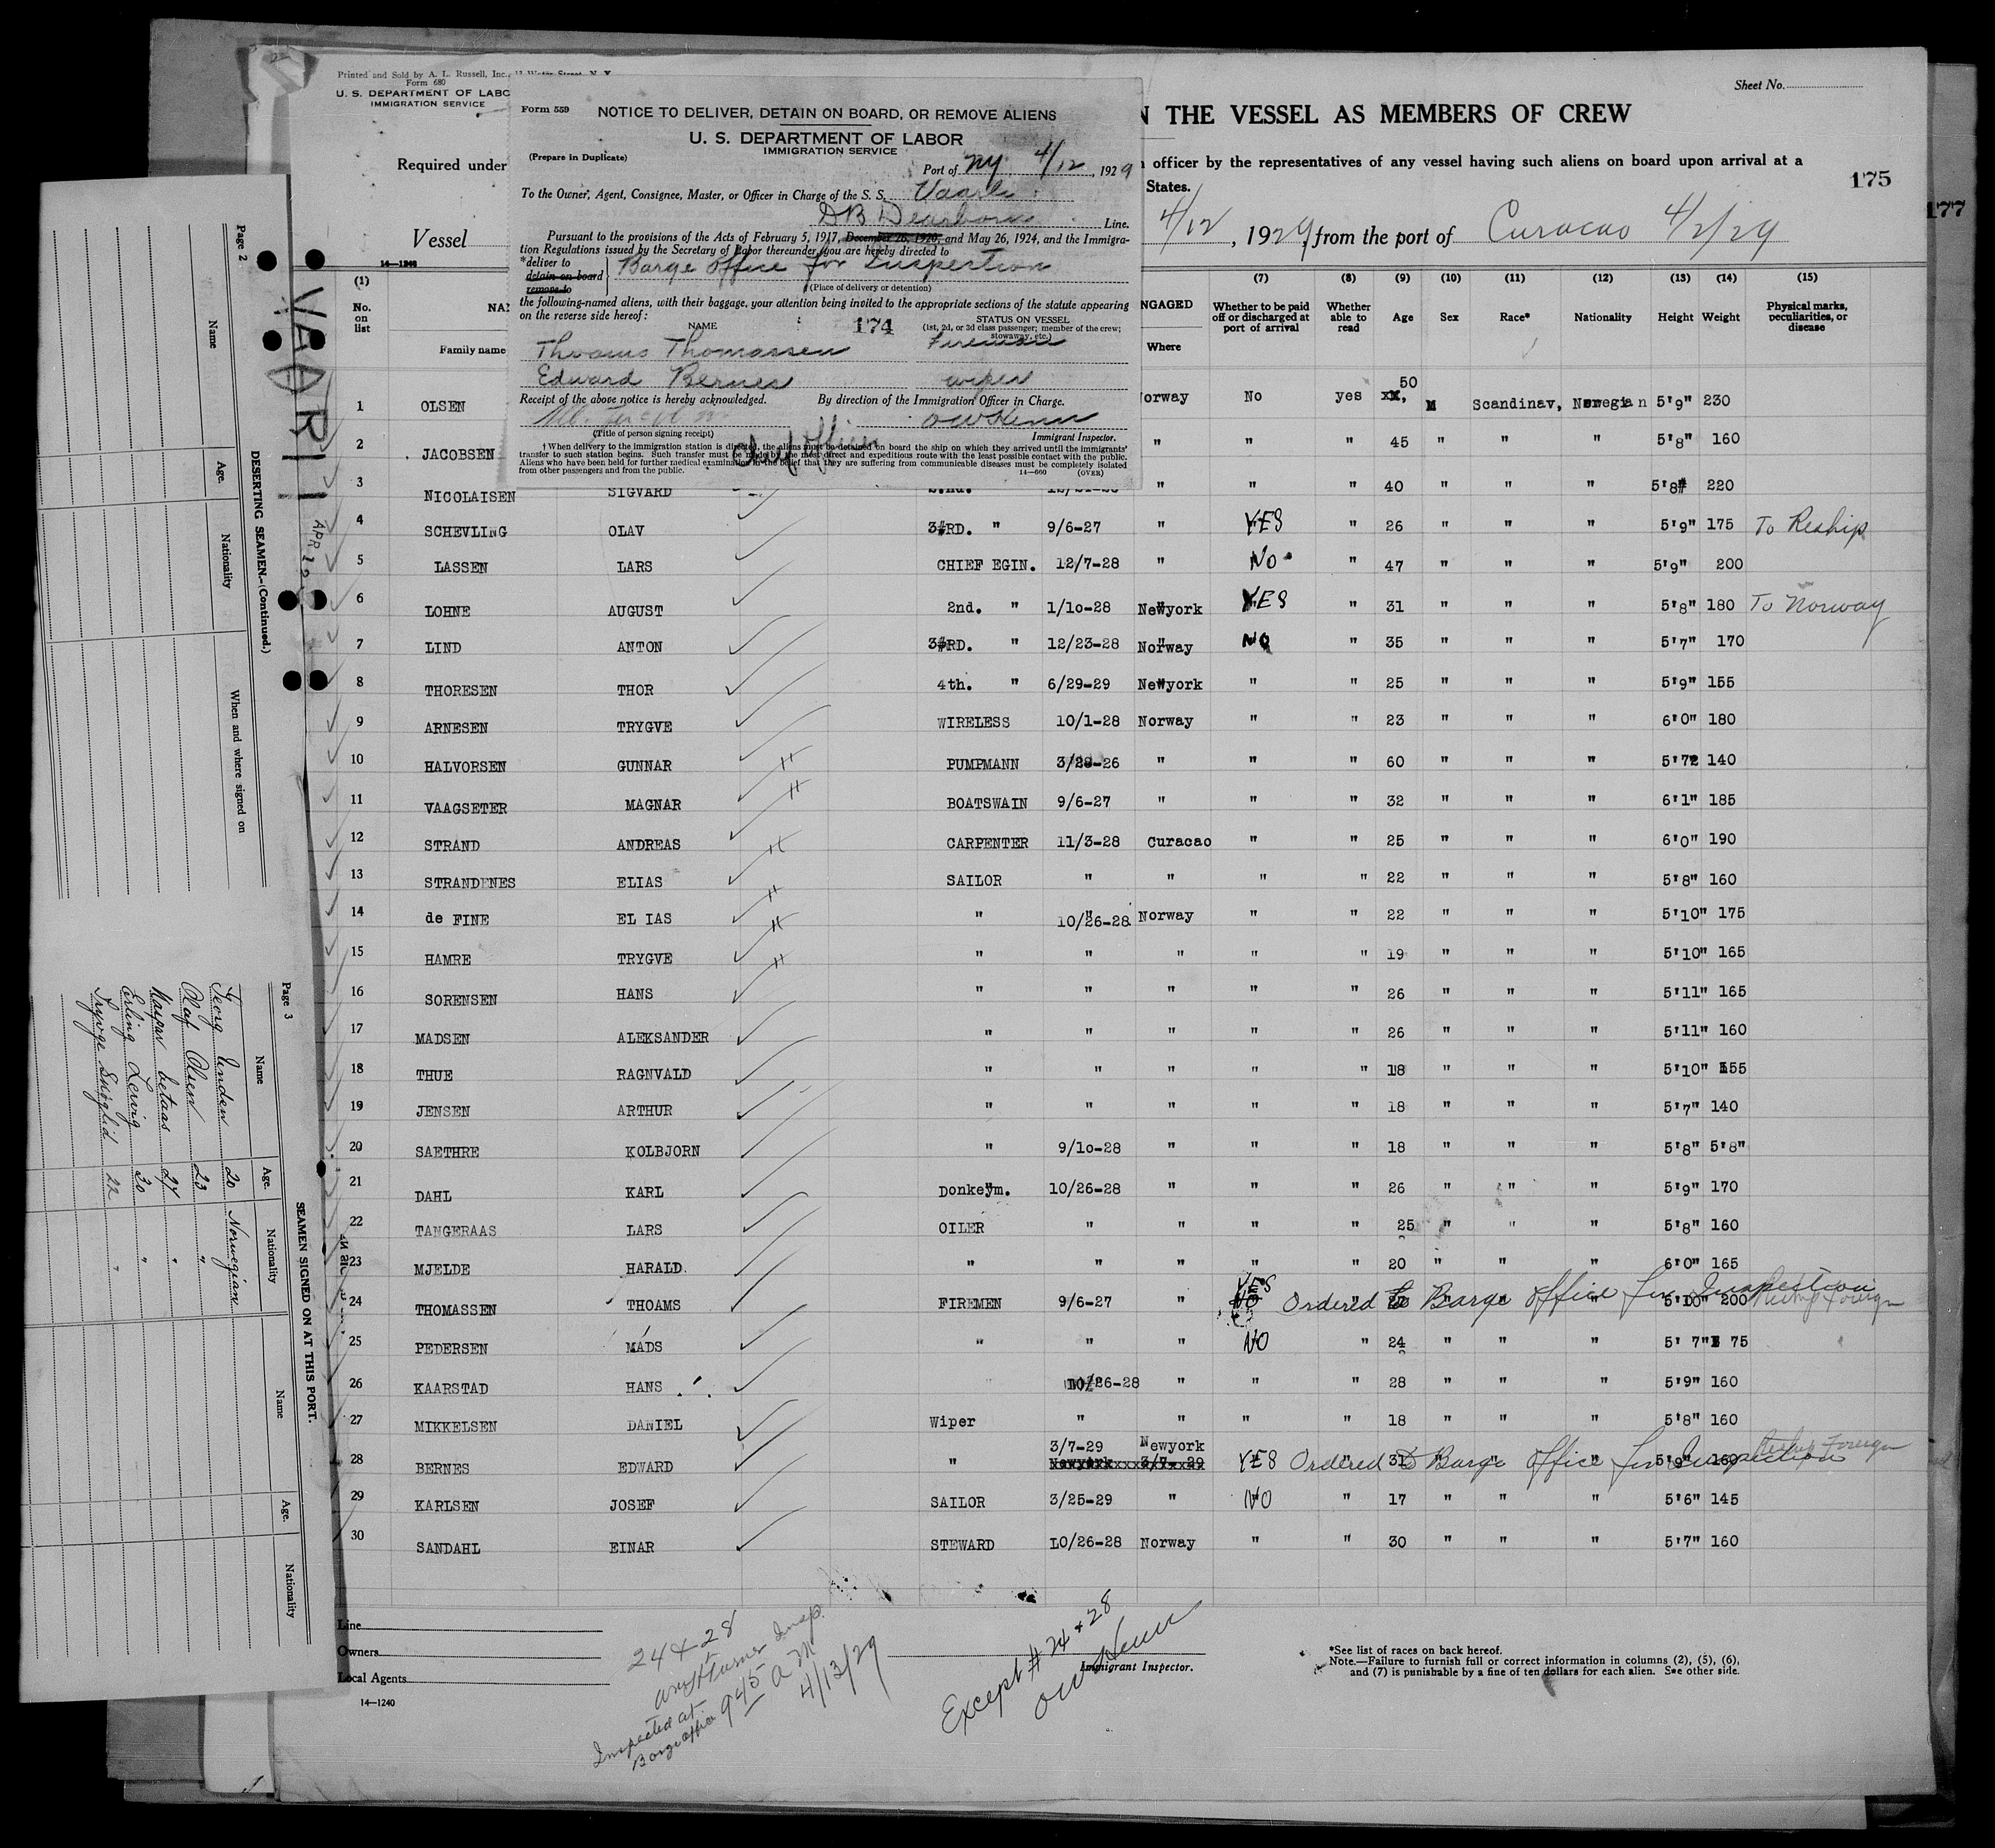 Printed and Sold by A. L. Russell, Inc.,
Form 680
U. S. DEPARTMENT OF LABO
IMMIGRATION SERVICE
Required under
Vessel
14—1240
Sheet No.
N THE VESSEL AS MEMBERS OF CREW
officer by the representatives of any vessel having such aliens on board upon arrival at a
States.
175
177
4/12, 1929, from the port of Curacao 4/2/29
Form 559
NOTICE TO DELIVER, DETAIN ON BOARD, OR REMOVE ALIENS
U. S. DEPARTMENT OF LABOR
IMMIGRATION SERVICE
(Prepare in Duplicate)
Port of NY 4/12, 1929
To the Owner, Agent, Consignee, Master, or Officer in Charge of the S. S. Vaarli
DB Dearborn Line.
Pursuant to the provisions of the Acts of February 5, 1917, December 26, 1920, and May 26, 1924, and the Immigra-
tion Regulations issued by the Secretary of Labor thereunder, you are hereby directed to
*deliver to
detain on board
remove to
Barge Office for Inspection
(Place of delivery or detention)
the following-named aliens, with their baggage, your attention being invited to the appropriate sections of the statute appearing
on the reverse side hereof:
NAME
174
STATUS ON VESSEL
(1st, 2d, or 3d class passenger; member of the crew;
stowaway, etc.)
Thoams Thomassen Fireman
Edward Bernes wiper
Receipt of the above notice is hereby acknowledged. By direction of the Immigration Officer in Charge.
Chief Officer
(Title of person signing receipt)
Immigrant Inspector.
† When delivery to the immigration station is directed, the aliens must be detained on board the ship on which they arrived until the immigrants'
transfer to such station begins. Such transfer must be made by the most direct and expeditious route with the least possible contact with the public.
Aliens who have been held for further medical examination in the belief that they are suffering from communicable diseases must be completely isolated
from other passengers and from the public. 14—660 (OVER)
(1) (7) (8) (9) (10) (11) (12) (13) (14) (15)
No. on list
Family name
NGAGED
Where
Whether to be paid off or discharged at port of arrival
Whether able to read
Age Sex Race* Nationality Height Weight
Physical marks, peculiarities, or disease
1 OLSEN orway No yes xx, 50 M Scandinav, Norwegian 5'9" 230
2 JACOBSEN " " " 45 " " " 5'8" 160
3 NICOLAISEN SIGVARD 2nd. " " " 40 " " " 5'8" 220
4 SCHEVLING OLAV 3RD. " 9/6-27 " YES " 26 " " " 5'9" 175 To Reship
5 LASSEN LARS CHIEF EGIN. 12/7-28 " No " 47 " " " 5'9" 200
6 LOHNE AUGUST 2nd. " 1/10-28 Newyork YES " 31 " " " 5'8" 180 To Norway
7 LIND ANTON 3RD. " 12/23-28 Norway NO " 35 " " " 5'7" 170
8 THORESEN THOR 4th. " 6/29-29 Newyork " " 25 " " " 5'9" 155
9 ARNESEN TRYGVE WIRELESS 10/1-28 Norway " " 23 " " " 6'0" 180
10 HALVORSEN GUNNAR PUMPMANN 3/28-26 " " " 60 " " " 5'72 140
11 VAAGSETER MAGNAR BOATSWAIN 9/6-27 " " " 32 " " " 6'1" 185
12 STRAND ANDREAS CARPENTER 11/3-28 Curacao " " 25 " " " 6'0" 190
13 STRANDENES ELIAS SAILOR " " " " 22 " " " 5'8" 160
14 de FINE EL IAS " 10/26-28 Norway " " 22 " " " 5'10" 175
15 HAMRE TRYGVE " " " " " 19 " " " 5'10" 165
16 SORENSEN HANS " " " " " 26 " " " 5'11" 165
17 MADSEN ALEKSANDER " " " " " 26 " " " 5'11" 160
18 THUE RAGNVALD " " " " " 18 " " " 5'10" 155
19 JENSEN ARTHUR " " " " " 18 " " " 5'7" 140
20 SAETHRE KOLBJORN " 9/10-28 " " " 18 " " " 5'8" 5'8"
21 DAHL KARL Donkeym. 10/26-28 " " " 26 " " " 5'9" 170
22 TANGERAAS LARS OILER " " " " 25 " " " 5'8" 160
23 MJELDE HARALD " " " " " 20 " " " 6'0" 165
24 THOMASSEN THOAMS FIREMEN 9/6-27 " YES NO Ordered to Barge Office for Inspection " " " 5'10" 200
25 PEDERSEN MADS " " " NO " 24 " " " 5' 7" 75
26 KAARSTAD HANS 10/26-28 " " " 28 " " " 5'9" 160
27 MIKKELSEN DANIEL Wiper " " " " 18 " " " 5'8" 160
28 BERNES EDWARD " 3/7-29 Newyork YES Ordered to Barge Office for Inspection " 31 " " " 5'9" 160 Reship Foreign
29 KARLSEN JOSEF SAILOR 3/25-29 " NO " 17 " " " 5'6" 145
30 SANDAHL EINAR STEWARD 10/26-28 Norway " " 30 " " " 5'7" 160
Line
Owners
Local Agents
14—1240
24 + 28
Inspected at
Barge office 945 AM
4/13/29
Except # 24 + 28
Immigrant Inspector.
*See list of races on back hereof.
Note.—Failure to furnish full or correct information in columns (2), (5), (6),
and (7) is punishable by a fine of ten dollars for each alien. See other side.
VAARLI
APR 12
Page 2
DESERTING SEAMEN.—(Continued.)
Name Age. Nationality When and where signed on
Page 3
SEAMEN SIGNED ON AT THIS PORT.
Name Age. Nationality Name Age. Nationality
Georg Unden 20 Norwegian
Olaf Olsen 23 "
Kaspar 27 "
Erling Lervig 30 "
22 "